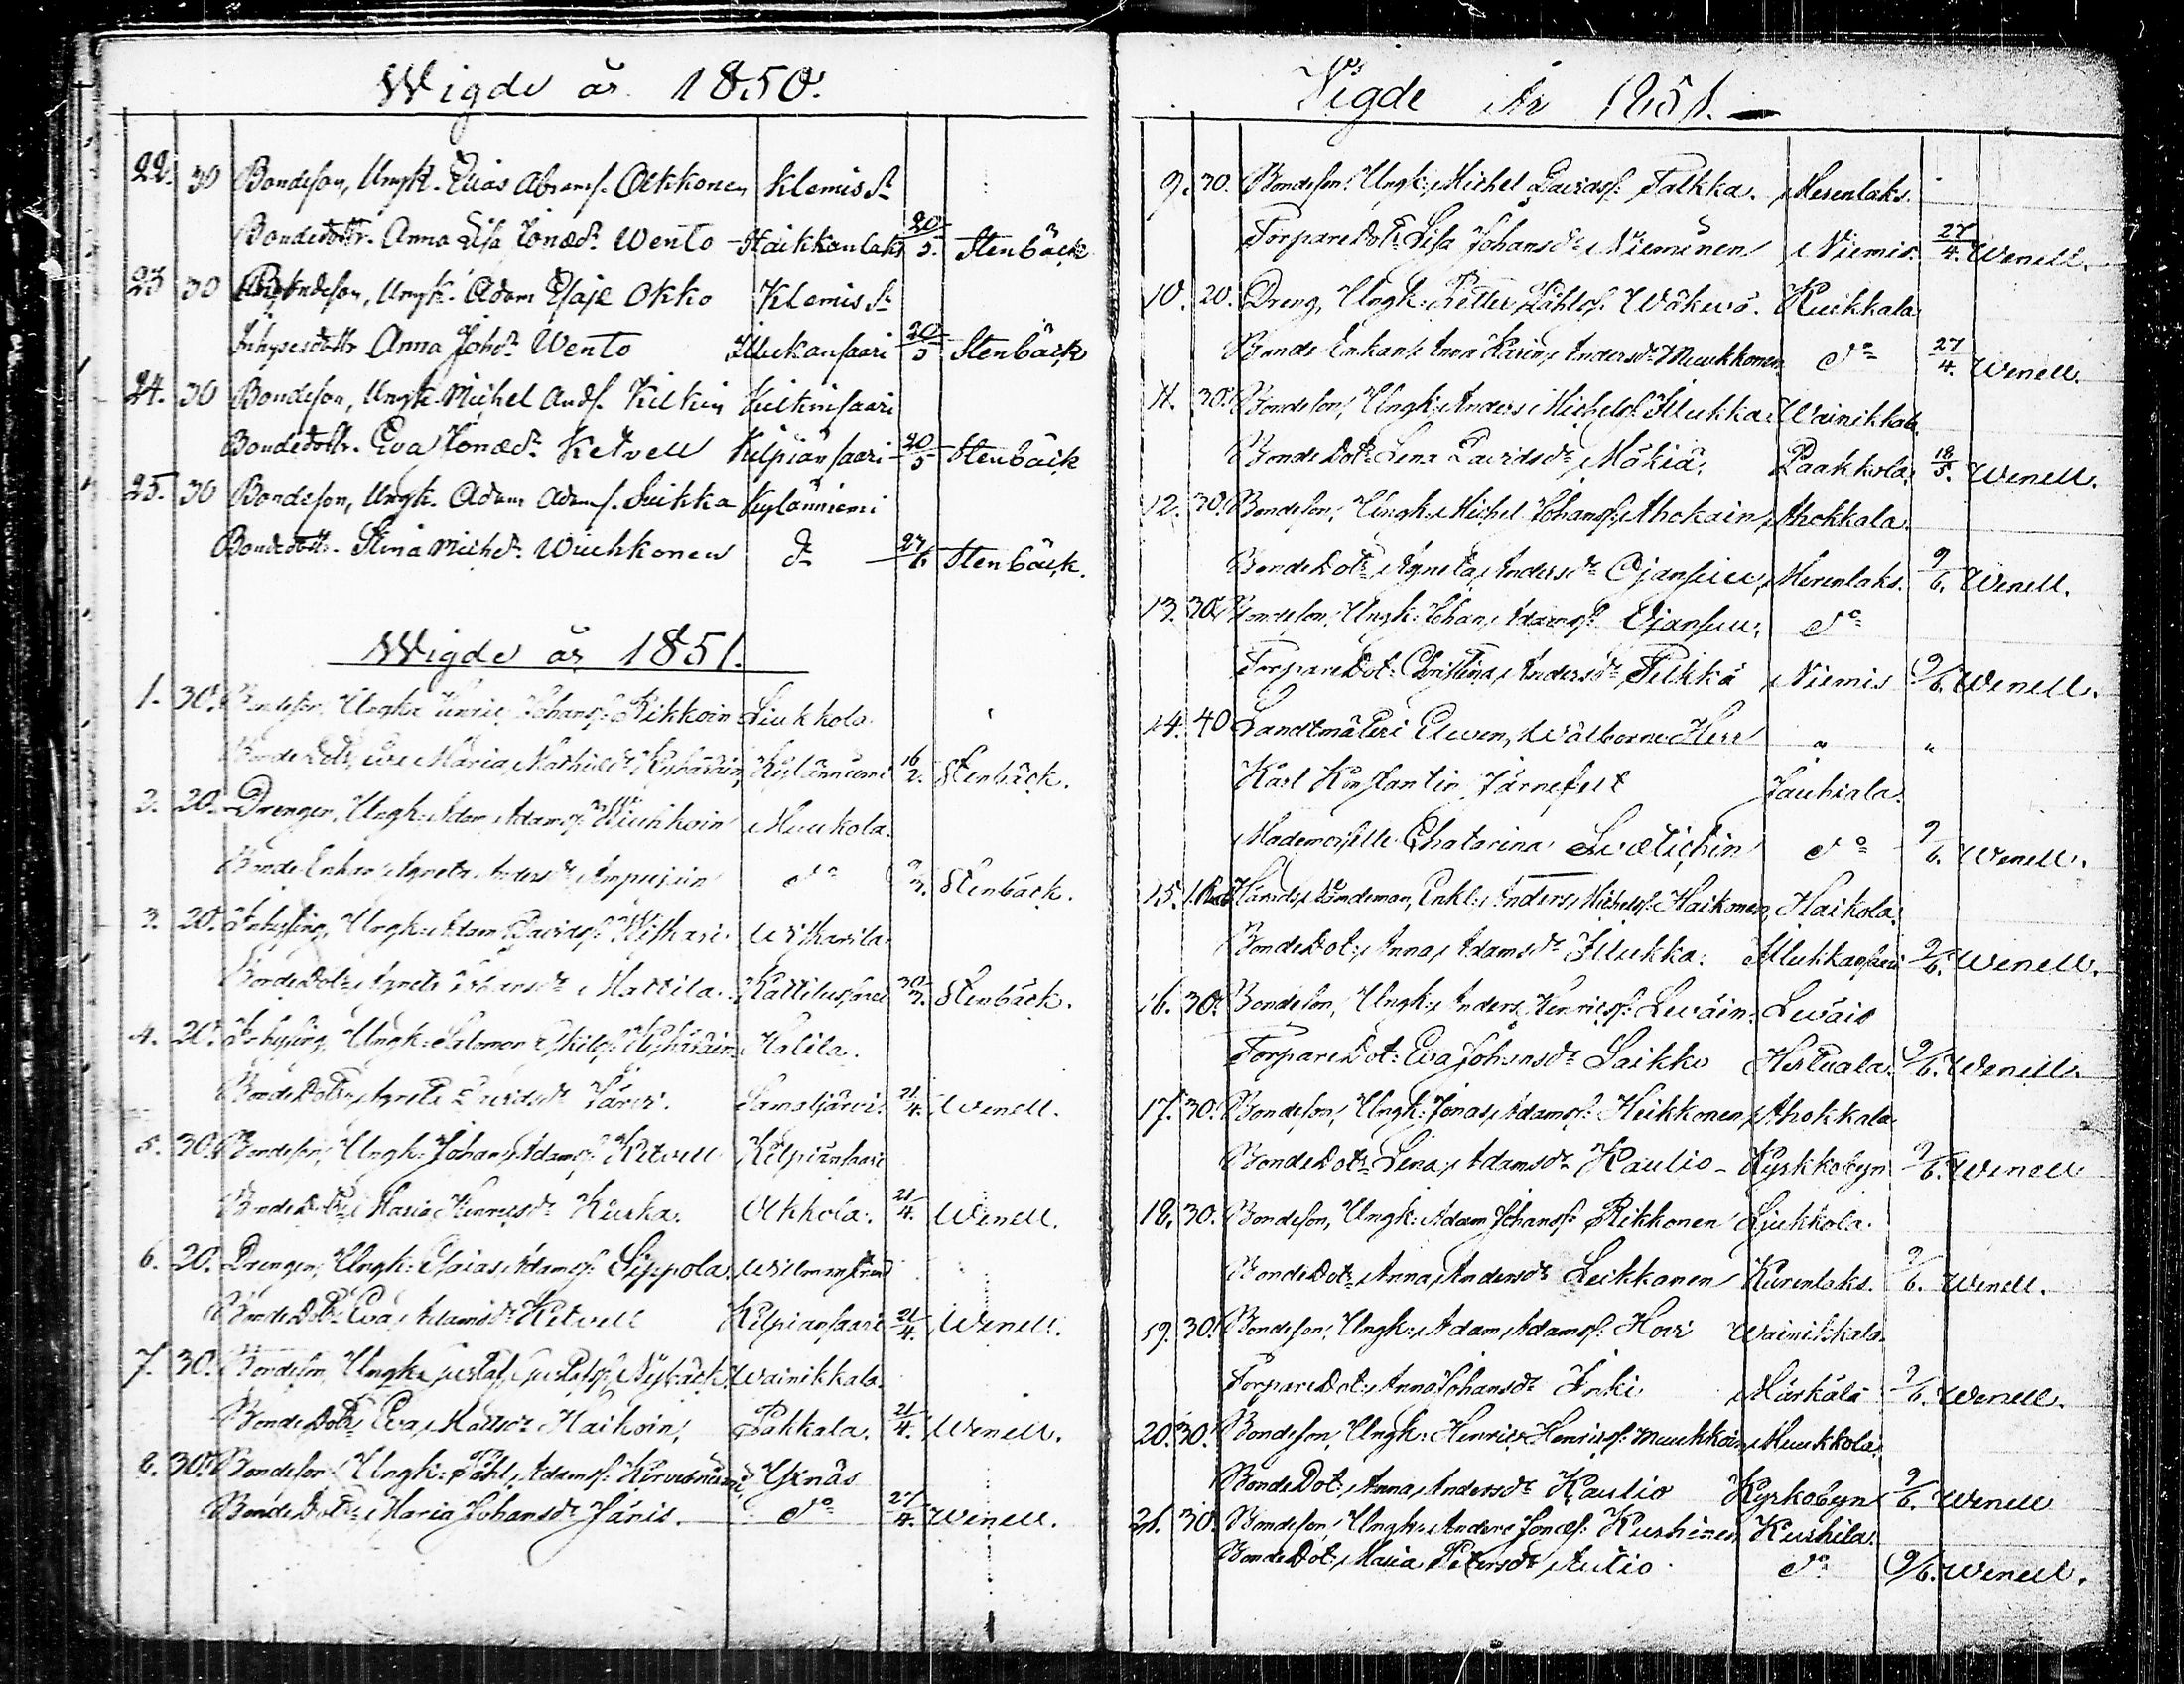 Wigde år 1850.
22. 30 Bondeson, Ungk. Elias Abramss. Okkonen Klemis
Bondedottr. Anna Lisa Jonæd:r Wento Haikkanlaks 20/5. Stenbäck
23 30 Bondeson, Ungk. Adam Esaje Okko Klemis
Inhysesdottr Anna Joh:dr Wento Ilukansaari 20/5 Stenbäck
24. 30 Bondeson, Ungk. Michel Ands. Kilkin Kilkinsaari
Bondedottr. Eva Jonæd:r Ketvell Kilpiänsaari 20/5 Stenbäck
25. 30 Bondeson, Ungk. Adam Adams. Suikka Kylänniemi
Bondedottr. Stina Mich:dr Wiuhkonen d:o 27/6 Stenbäck.
Wigde år 1851.
1. 30. Bondeson, Ungk: Henric Johanss: Rikkoin Liukkola
Bonde Dotr, Maria Kylänniemi 16/2. Stenbäck.
2. 20. Drengen, Ungk: Adam Adamss: Wiuhkoin Muukola.
Bonde Enkan Agneta Andersd:r Ampujain d:o Stenbäck.
3. 20. Inhysing, Ungk: Adam Davidss: Wiskari Wiskarila.
Bonde Dotr Agneta Johansd:r Mattila. Kattilusaari 30/3. Stenbäck.
4. 20. Inhysing, Ungk: Salomon Halila.
Bonde Dotr Agneta Davidsd:r Järvi. Samaljärvi. 21/4. Wenell.
5. 30. Bondeson, Ungk: Johan Adamss: Ketvell Kilpiänsaari
Bonde Dotr Maria Henricsd:r Kurka. Okkola. 21/4. Wenell.
6. 20. Drengen, Ungk: Esaias Adamss: Sippola. Wilmanstrand
Bonde Dotr Eva Adamsd:r Ketvell Kilpiansaari 21/4. Wenell.
7. 30. Bondeson, Ungk: Gustaf Gustafss: Nybäck Wainikkala.
Bonde Dotr Eva Mattsd:r Haikoin, Pakkala. 21/4. Wenell.
8. 30. Bondeson, Ungk: Påhl Adamss: Kirvesniemi, Yxnäs
Bonde Dotr Maria Johansd:r Jänis. d:o 27/4. Wenell.
Vigde År 1851.
9. 30. Bondeson, Ungk: Michel Davidss: Talkka. Merenlaks.
Torpare Dotr Lisa Johansd:r Nieminen Niemis. 27/4. Wenell.
10. 20. Dreng, Ungk: Petter Påhlss: Wäkewä. Kuikkala
Bonde Enkan Anna Karin Andersd:r Muukkonen d:o 27/4. Wenell.
11. 30. Bondeson, Ungk: Anders Michelss: Ilukka. Wainikkala.
Bonde Dotr Lena Davidsd:r Mäkiä. Paakkola. 18/5. Wenell.
12. 30. Bondeson, Ungk: Michel Johanss: Ahokain, Ahokkala.
Bonde Dotr Agneta Andersd:r Ojansuu, Merenlaks. 9/6. Wenell.
13. 30. Bondeson, Ungk: Johan Adamss: Ojansuu, d:o
Torpare Dot: Christina Andersd:r Pelkkä Niemis 9/6. Wenell.
14. 40 Landtmäteri Eleven, Wälborne Herr " "
Karl Konstantin Järnefelt Jauhiala.
Mademoiselle Chatarina Swætichin d:o 9/6. Wenell.
15. Härads Nämdeman, Enkl: Anders Michelss: Haikonen, Haikola.
Bonde Dot: Anna Adamsd:r Ilukka. Ilukkansaari 9/6. Wenell.
16. 30. Bondeson, Ungk: Anders Henricss: Lewäin. Lewäis
Torpare Dot: Eva Johansd:r Saikko Hertuala. 9/6. Wenell.
17. 30. Bondeson, Ungk: Jonas Adamss: Heikkonen, Ahokkala.
Bonde Dotr Lena Adamsd:r Kaulio - Kyrkkobyn 9/6. Wenell
18. 30. Bondeson, Ungk: Adam Johanss: Rikkonen Liukkola.
Bonde Dotr Anna Andersd:r Leikkonen Kurenlaks. 9/6. Wenell.
19. 30. Bondeson, Ungk: Adam Adamss: Hovi Wainikkala.
Torpare Dot: Anna Johansd:r Inki Märkälä 9/6. Wenell.
20. 30. Bondeson, Ungk: Henric Henricss: Muukkoin, Muukkola.
Bonde Dot: Anna Andersd:r Kaulio Kyrkobyn 9/6. Wenell
21. 30. Bondeson, Ungk: Anders Jonæs: Kurhinen Kurhila.
Bonde Dot: Maria Petersd:r Aulio. d:o 9/6. Wenell.